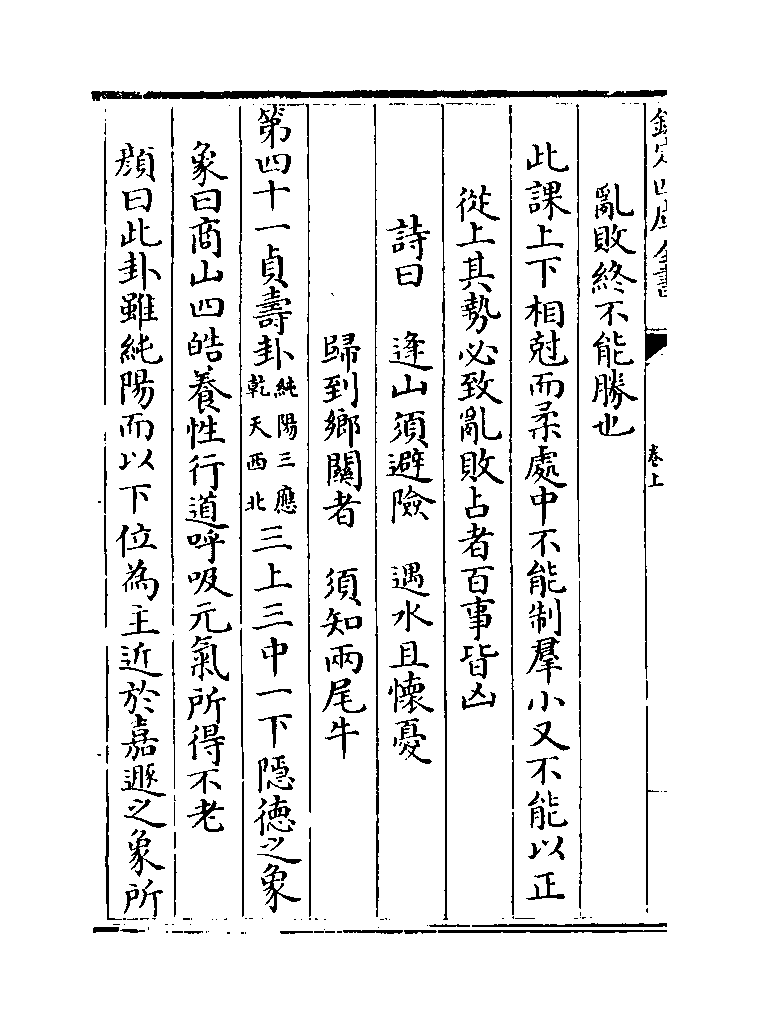 欽定四庫全書
卷上
亂敗終不能勝也
此課上下相尅而柔處中不能制羣小又不能以正
從上其勢必致亂敗占者百事皆凶
詩曰　逢山須避險　遇水且懷憂
歸到鄉關者　須知兩尾牛
第四十一貞壽卦純陽三應乾天西北三上三中一下隱德之象
象曰商山四皓養性行道呼吸元氣所得不老
顔曰此卦雖純陽而以下位為主近於嘉遯之象所